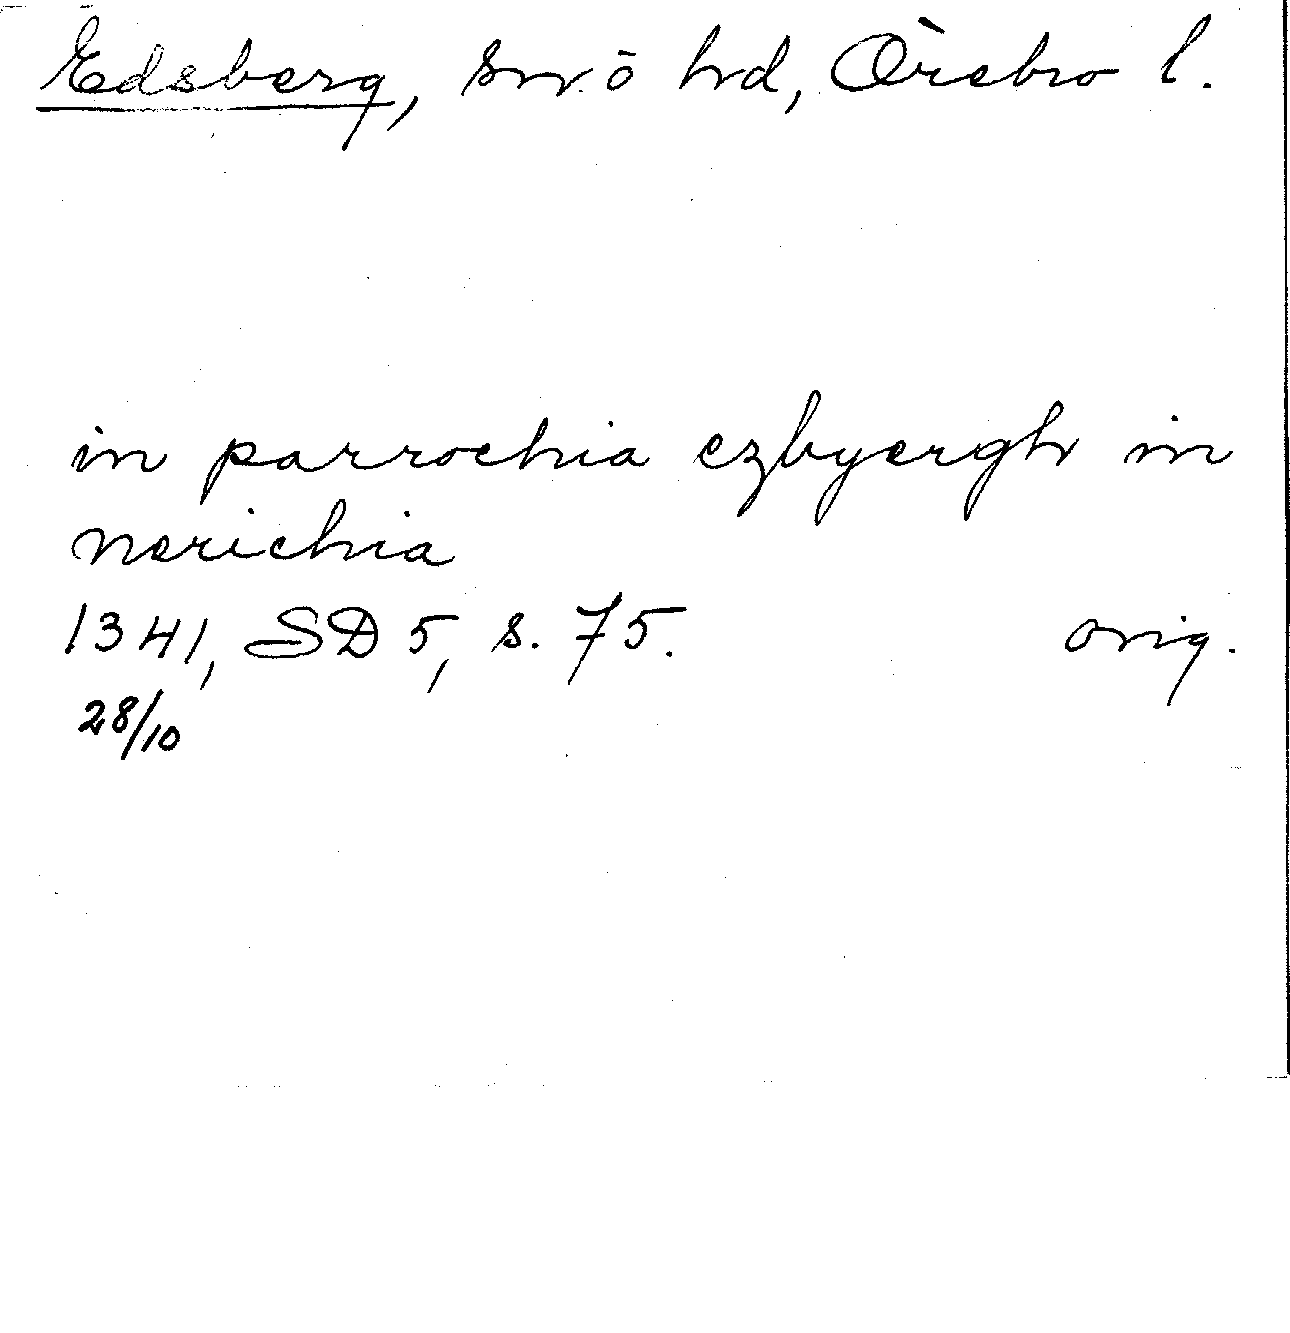 Edsberg, sn o hd, Örebro l.
in parrochia ezbyergh in
nerichia
1341, SD 5, s. 75. orig.
28/10